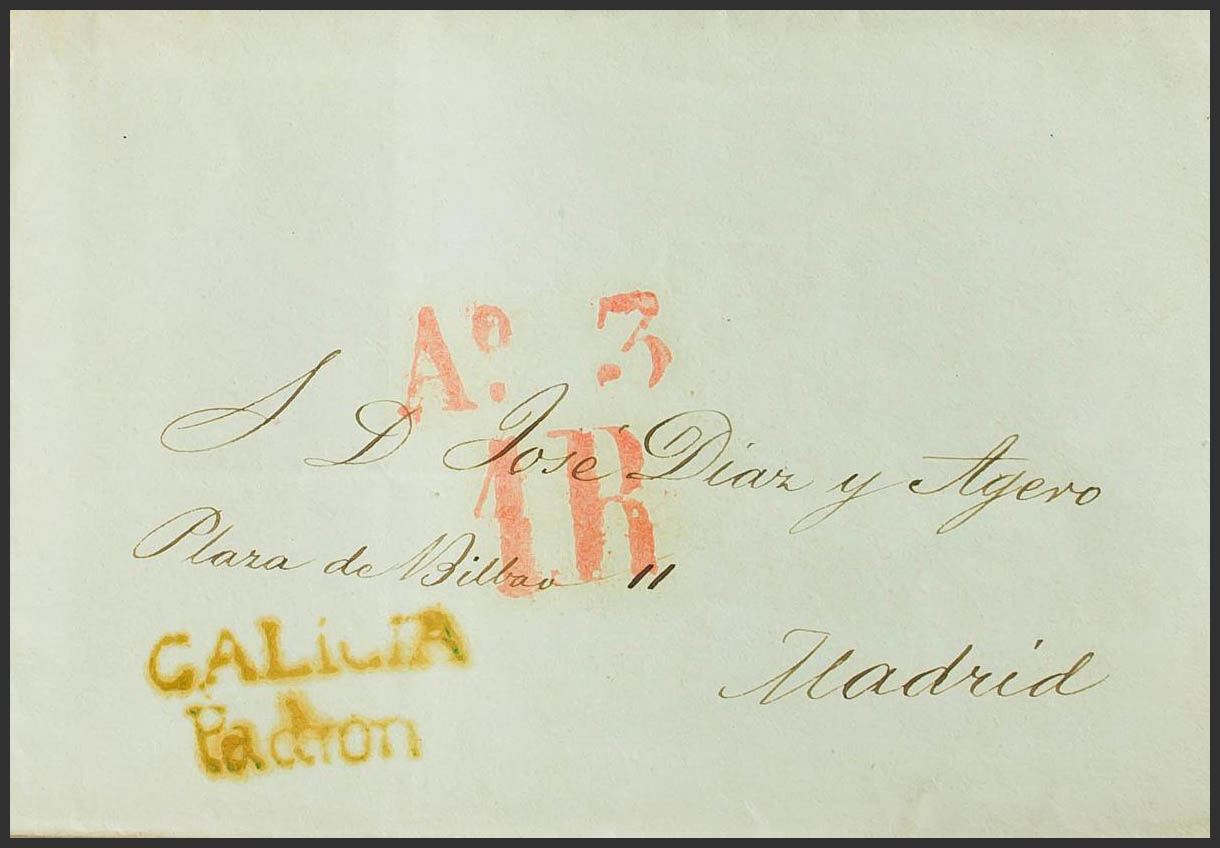 Aº. 3
S D José Diaz y Agero
1R
Plaza de Bilbao 11
GALiCiA
Padron
Madrid